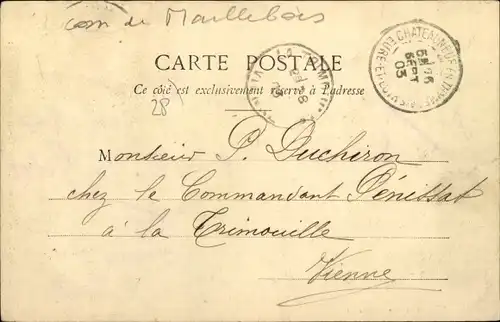 com de Maillebois
CARTE POSTALE
Ce côté est exclusivement réservé à l'adresse
28
CHATEAUNEUF-EN-THIMERAIS
EURE-ET-LOIR
SEPT
03
Monsieur P. Duchiron
chez le Commandant Pénissat
à la Trimouille
Vienne